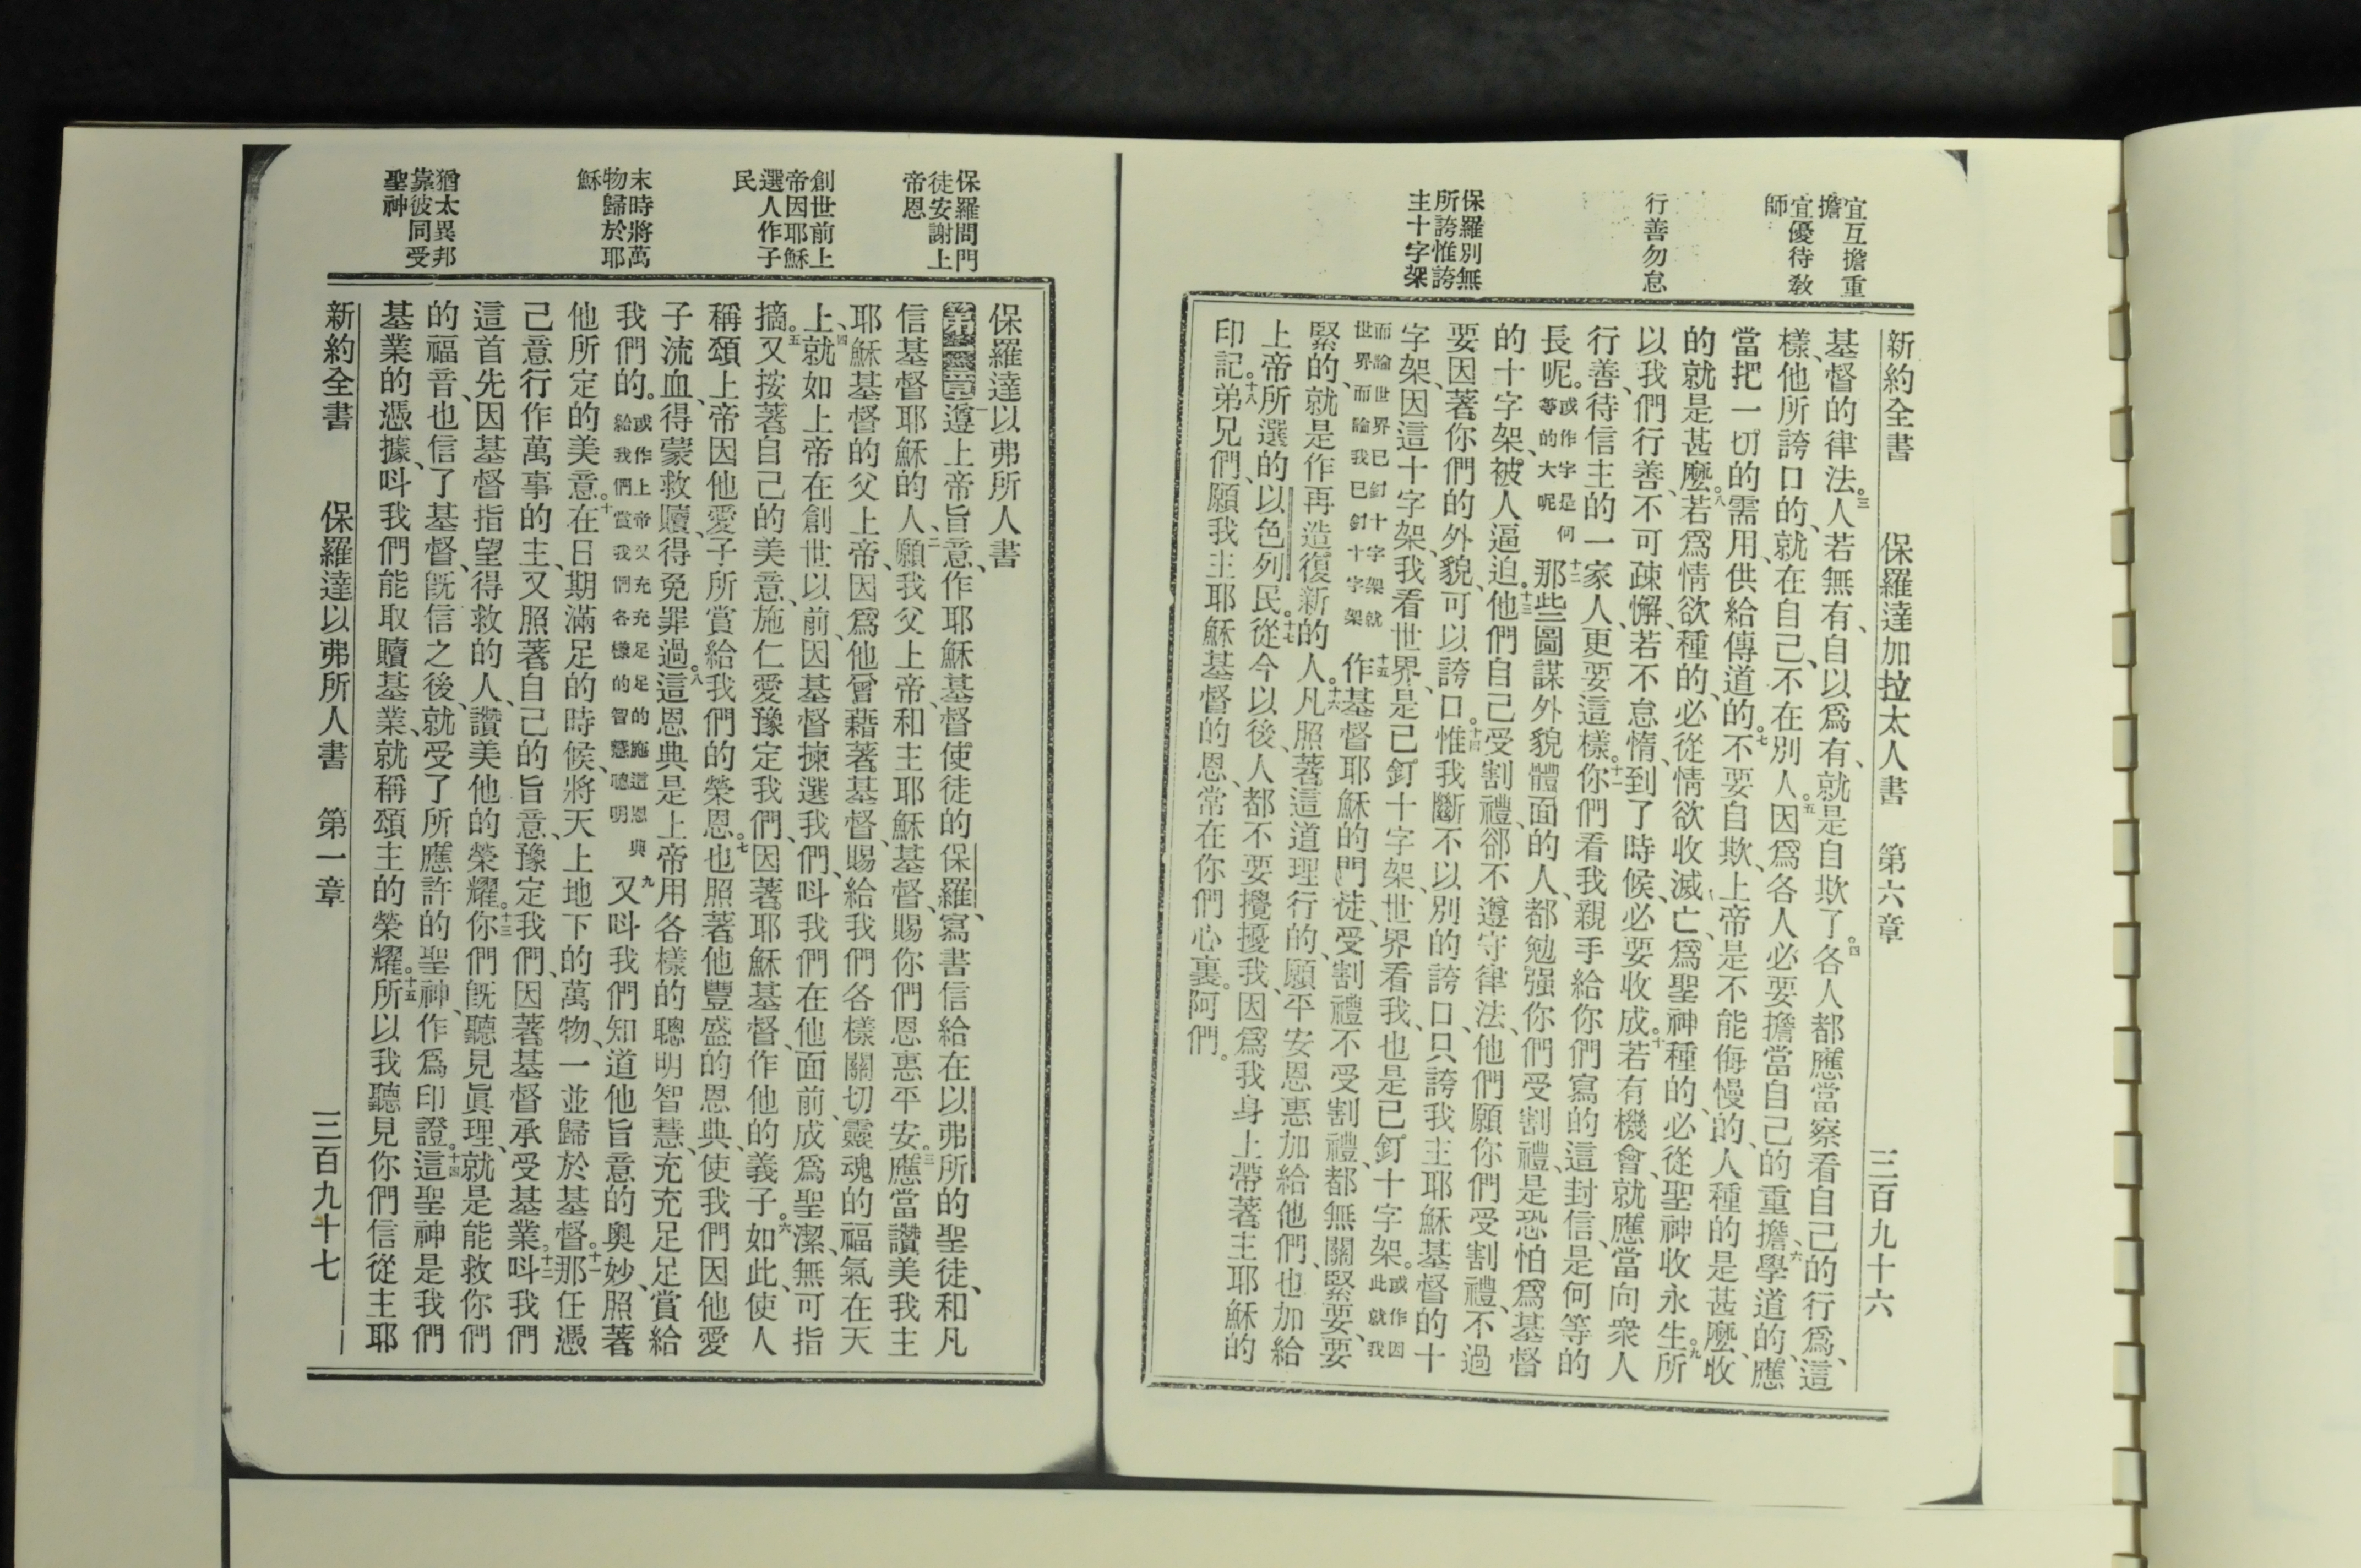 宜互擔重
擔
宜優待敎
師
行善勿怠
保羅別無
所誇惟誇
主十字架
新約全書 保羅達加拉太人書 第六章 三百九十六
基督的律法。三人若無有、自以爲有、就是自欺了。四各人都應當察看自己的行爲、這
樣、他所誇口的、就在自己、不在別人。五因爲各人必要擔當自己的重擔、六學道的、應
當把一切的需用、供給傳道的。七不要自欺、上帝是不能侮慢的、人種的是甚麼、收
的就是甚麼。八若爲情欲種的、必從情欲收滅亡、爲聖神種的、必從聖神收永生。九所
以我們行善、不可疎懈、若不怠惰、到了時候、必要收成。十若有機會、就應當向衆人
行善、待信主的一家人、更要這樣。十一你們看我親手給你們寫的這封信、是何等的
長呢。或作字是何等的大呢 十二那些圖謀外貌體面的人、都勉强你們受割禮、是恐怕爲基督
的十字架、被人逼迫。十三他們自己受割禮、卻不遵守律法、他們願你們受割禮、不過
要因著你們的外貌、可以誇口。十四惟我斷不以別的誇口、只誇我主耶穌基督的十
字架、因這十字架、我看世界、是已釘十字架、世界看我、也是已釘十字架。或作因此就我
而論世界已釘十字架就世界而論我已釘十字架 十五作基督耶穌的門徒、受割禮不受割禮、都無關緊要、要
緊的、就是作再造復新的人。十六凡照著這道理行的、願平安恩惠加給他們、也加給
上帝所選的以色列民。十七從今以後、人都不要攪擾我、因爲我身上帶著主耶穌的
印記。十八弟兄們、願我主耶穌基督的恩、常在你們心裏。阿們。
保羅問門
徒安謝上
帝恩
創世前上
帝因耶穌
選人作子
民
末時將萬
物歸於耶
穌
猶太異邦
靠彼同受
聖神
保羅達以弗所人書
第一章一遵上帝旨意、作耶穌基督使徒的保羅、寫書信給在以弗所的聖徒、和凡
信基督耶穌的人、二願我父上帝、和主耶穌基督、賜你們恩惠平安。三應當讚美我主
耶穌基督的父上帝、因爲他曾藉著基督、賜給我們各樣關切靈魂的福氣在天
上、四就如上帝在創世以前、因基督揀選我們、呌我們在他面前、成爲聖潔、無可指
摘。五又按著自己的美意、施仁愛豫定我們、因著耶穌基督、作他的義子。六如此、使人
稱頌上帝因他愛子所賞給我們的榮恩。七也照著他豐盛的恩典、使我們因他愛
子流血、得蒙救贖、得免罪過。八這恩典是上帝用各樣的聰明智慧、充充足足賞給
我們的。或作上帝又充充足足的施這恩典給我們賞我們各樣的智慧聰明 九又呌我們知道他旨意的奧妙、照著
他所定的美意。十在日期滿足的時候、將天上地下的萬物、一並歸於基督。十一那任憑
己意行作萬事的主、又照著自己的旨意、豫定我們、因著基督承受基業。十二呌我們
這首先因基督指望得救的人、讚美他的榮耀。十三你們旣聽見眞理、就是能救你們
的福音、也信了基督、旣信之後、就受了所應許的聖神、作爲印證。十四這聖神是我們
基業的憑據、呌我們能取贖基業、就稱頌主的榮耀。十五所以我聽見你們信從主耶
新約全書 保羅達以弗所人書 第一章 三百九十七